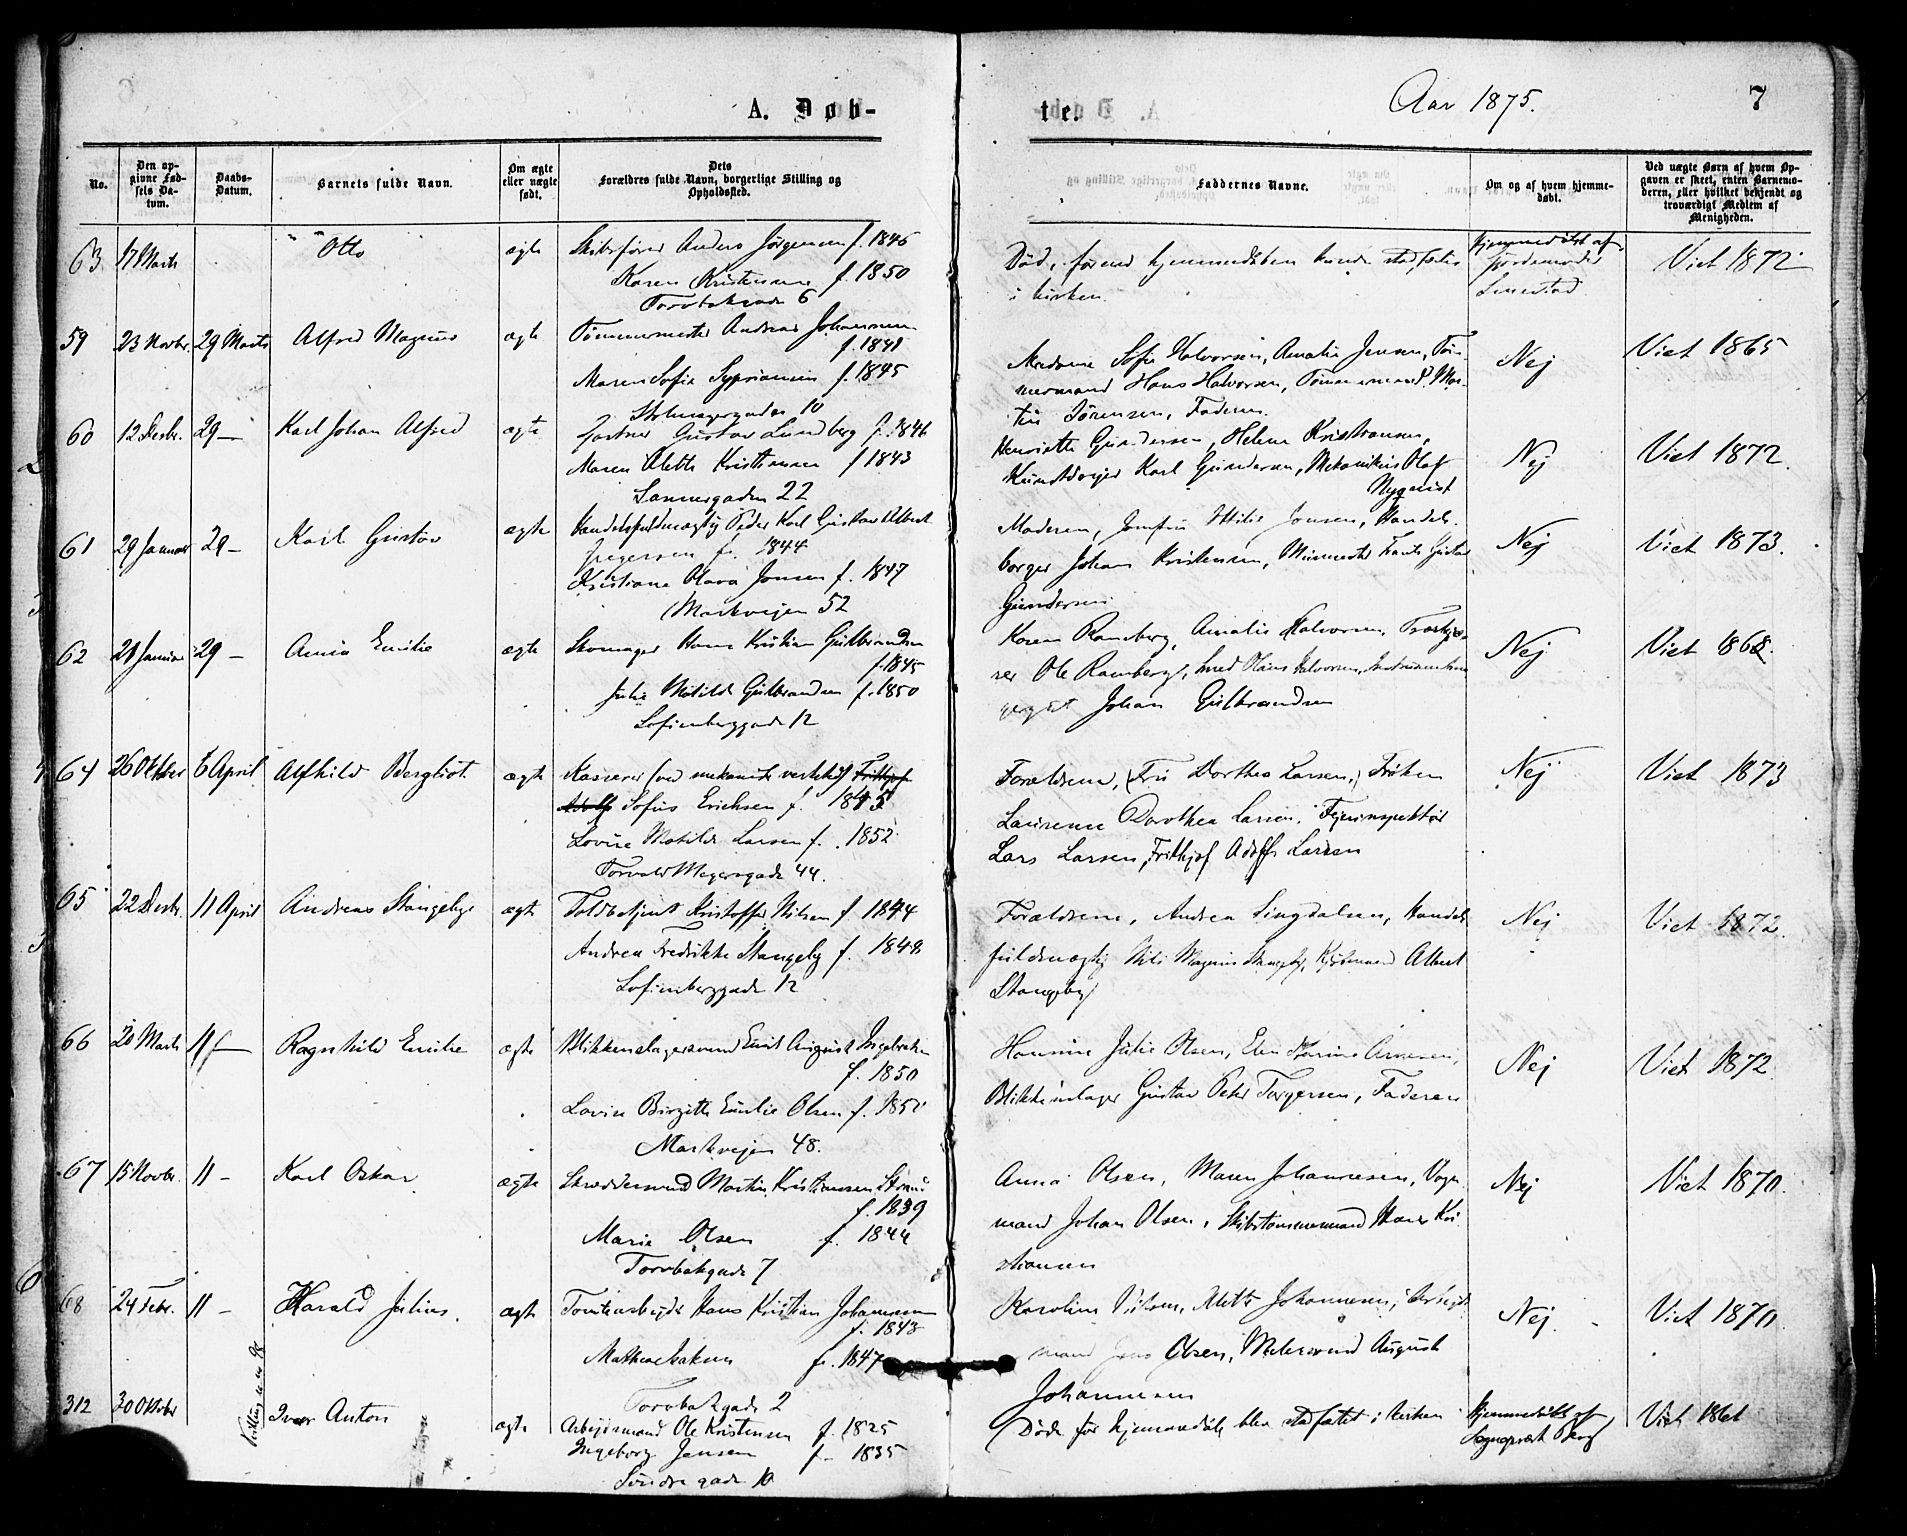 A. Døb-
te.
Aar 1875.
7
No.
Den opgivne Fødsels Datum.
Daabs-Datum.
Barnets fulde Navn.
Om ægte eller uægte født.
Dets Forældres fulde Navn, borgerlige Stilling og Opholdssted.
Faddernes Navne.
Om og af hvem hjemmedøbt.
Ved uægte Børn af hvem Opgaven er skeet, enten Barnemoderen, eller hvilket bekjendt og troværdigt Medlem af Menigheden.
63 17 Marts Otto ægte Skibsfører Anders Jørgensen f. 1846
Karen Kristensen f. 1850
Torvbakgade 6
Død, førend hjemmedåben kunde stadfæstes
i kirken.
Hjemmedøbt af
Jordemoder
Viet 1872
59 23 Novbr. 29 Marts Alfred Magnus ægte Tømmermester Andreas Johannesen
f. 1841
Maren Sofie Syprianien f. 1845
10
Madame Sofie Halvorsen, Amalie Jensen, Tøm-
mermand Hans Halvorsen, Tømmermand Mar-
tin Sørensen, Faderen.
Nej
Viet 1865
60 12 Desbr. 29 — Karl Johan Alfred ægte Gartner Gustav Lundberg f. 1846
Maren Alette Kristiansen f 1843
Sannergaden 22
Henriette Gundersen, Helene Kristiansen,
Karl Gundersen, Mekanikus Olaf
Nyquist
Nej
Viet 1872
61 29 Januar 29 — Karl Gustav ægte Handelsfuldmægtig Peder Karl Gustav Albert
f. 1844
Kristiane Olava Jonsen f. 1847
Markvejen 52
Moderen, Jomfru Jonsen, Handels-
borger Johan Kristensen, Murmester Frants Gustav
Gundersen
Nej
Viet 1873.
62 28 Januar 29 — Anna Emilie ægte Skomager Hans Kristian Gulbrandsen
f. 1845
Julie Matilde Gulbrandsen f. 1850
Sofienberggade 12
Karen Ramberg, Amalie Halvorsen,
Ole Ramberg, Smed Olaus Halvorsen,
Johan Gulbrandsen
Nej
Viet 1868.
64 26 Oktober 6 April Alfhild Bergliot ægte Kasserer (ved mekanisk verksted) Frithjof
Adolf Sofus Erichsen f. 1845
Lovise Matilde Larsen f. 1852
Torvald Meyersgade 44.
Forældrene, (Fru Dorthea Larsen,) Frøken
Laurense Dorothea Larsen, Fejerinspektør
Lars Larsen, Frithjof Adolf Larsen
Nej
Viet 1873
65 22 Desbr. 11 April Andreas Stangeby ægte Toldbetjent Kristoffer Nilsen f. 1844
Andrea Fredrikke Stangeby f. 1848
Sofienberggade 12
Forældrene, Andrea Singdalsen, Handels-
fuldmægtig Nils Magnus Stangeby, Kjøbmand Albert
Stangeby
Nej
Viet 1872.
66 20 Marts 11 — Ragnhild Emilie ægte Blikkenslagersvend Emil August Ingebretsen
f. 1850
Lovise Birgitte Emilie Olsen f. 1850
Markvejen 48.
Hansine Julie Olsen, Karine Arnesen,
Blikkenslager Gustav Peter Torgersen, Faderen
Nej
Viet 1872
67 15 Novbr. 11 — Karl Oskar ægte Skræddersvend Martin Kristiansen Strand
f. 1839
Marie Olsen f. 1844
Torvbakgade 7
Anna Olsen, Maren Johannesen, Vogn-
mand Johan Olsen, Skibstømmermand Hans Kri-
stiansen
Nej
Viet 1870.
68 24 Febr. 11 — Harald Julius. ægte Tomtearbejder Hans Kristian Johannesen
f. 1843
Mathea Isaksen f. 1847
Torvbakgade 2
Karoline Nilsen, Alette Johannesen, Arbejds-
mand Jens Olsen, Malersvend August
Johannesen
Nej.
Viet 1870
312 30 Oktober Ivar Anton ægte Arbejdsmand Ole Kristensen f. 1825
Ingeborg Jensen f. 1835
Søndre gade 10
Døde før hjemmedåb blev stadfæstet i kirken
Hjemmedøbt af
Sogneprest Berg
Viet 1861